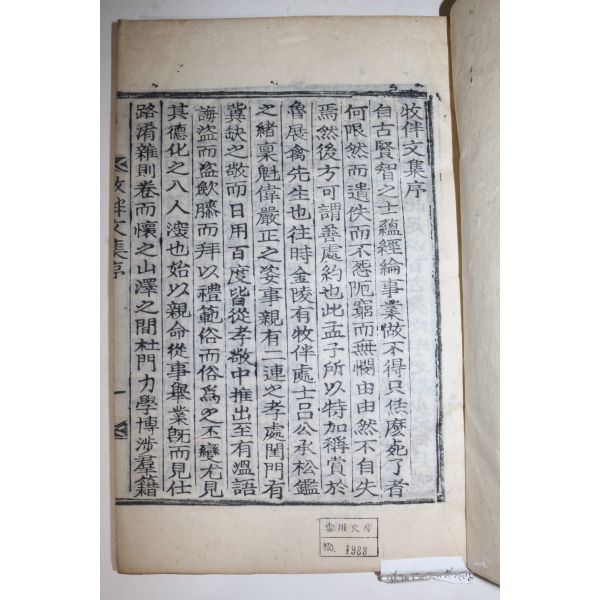 牧伴文集序
自古賢智之士蘊經綸事業做不得只恁麽死了者
何限然而遺佚而不怨阨窮而無憫由由然不自失
焉然後方可謂善處約也此孟子所以特加稱賞於
魯展禽先生也往時金陵有牧伴處士呂公承松鑑
之緖稟魁偉嚴正之姿事親有二連之孝處閨門有
冀缺之敬而日用百度皆從孝敬中推出至有溫語
誨盜而盜飮滕而拜以禮範俗而俗爲之丕變尤見
其德化之入人深也始以親命從事擧業旣而見仕
路淆雜則卷而懷之山澤之間杜門力學博涉羣籍
牧伴文集序
一
雲川文庫
NO. 1988